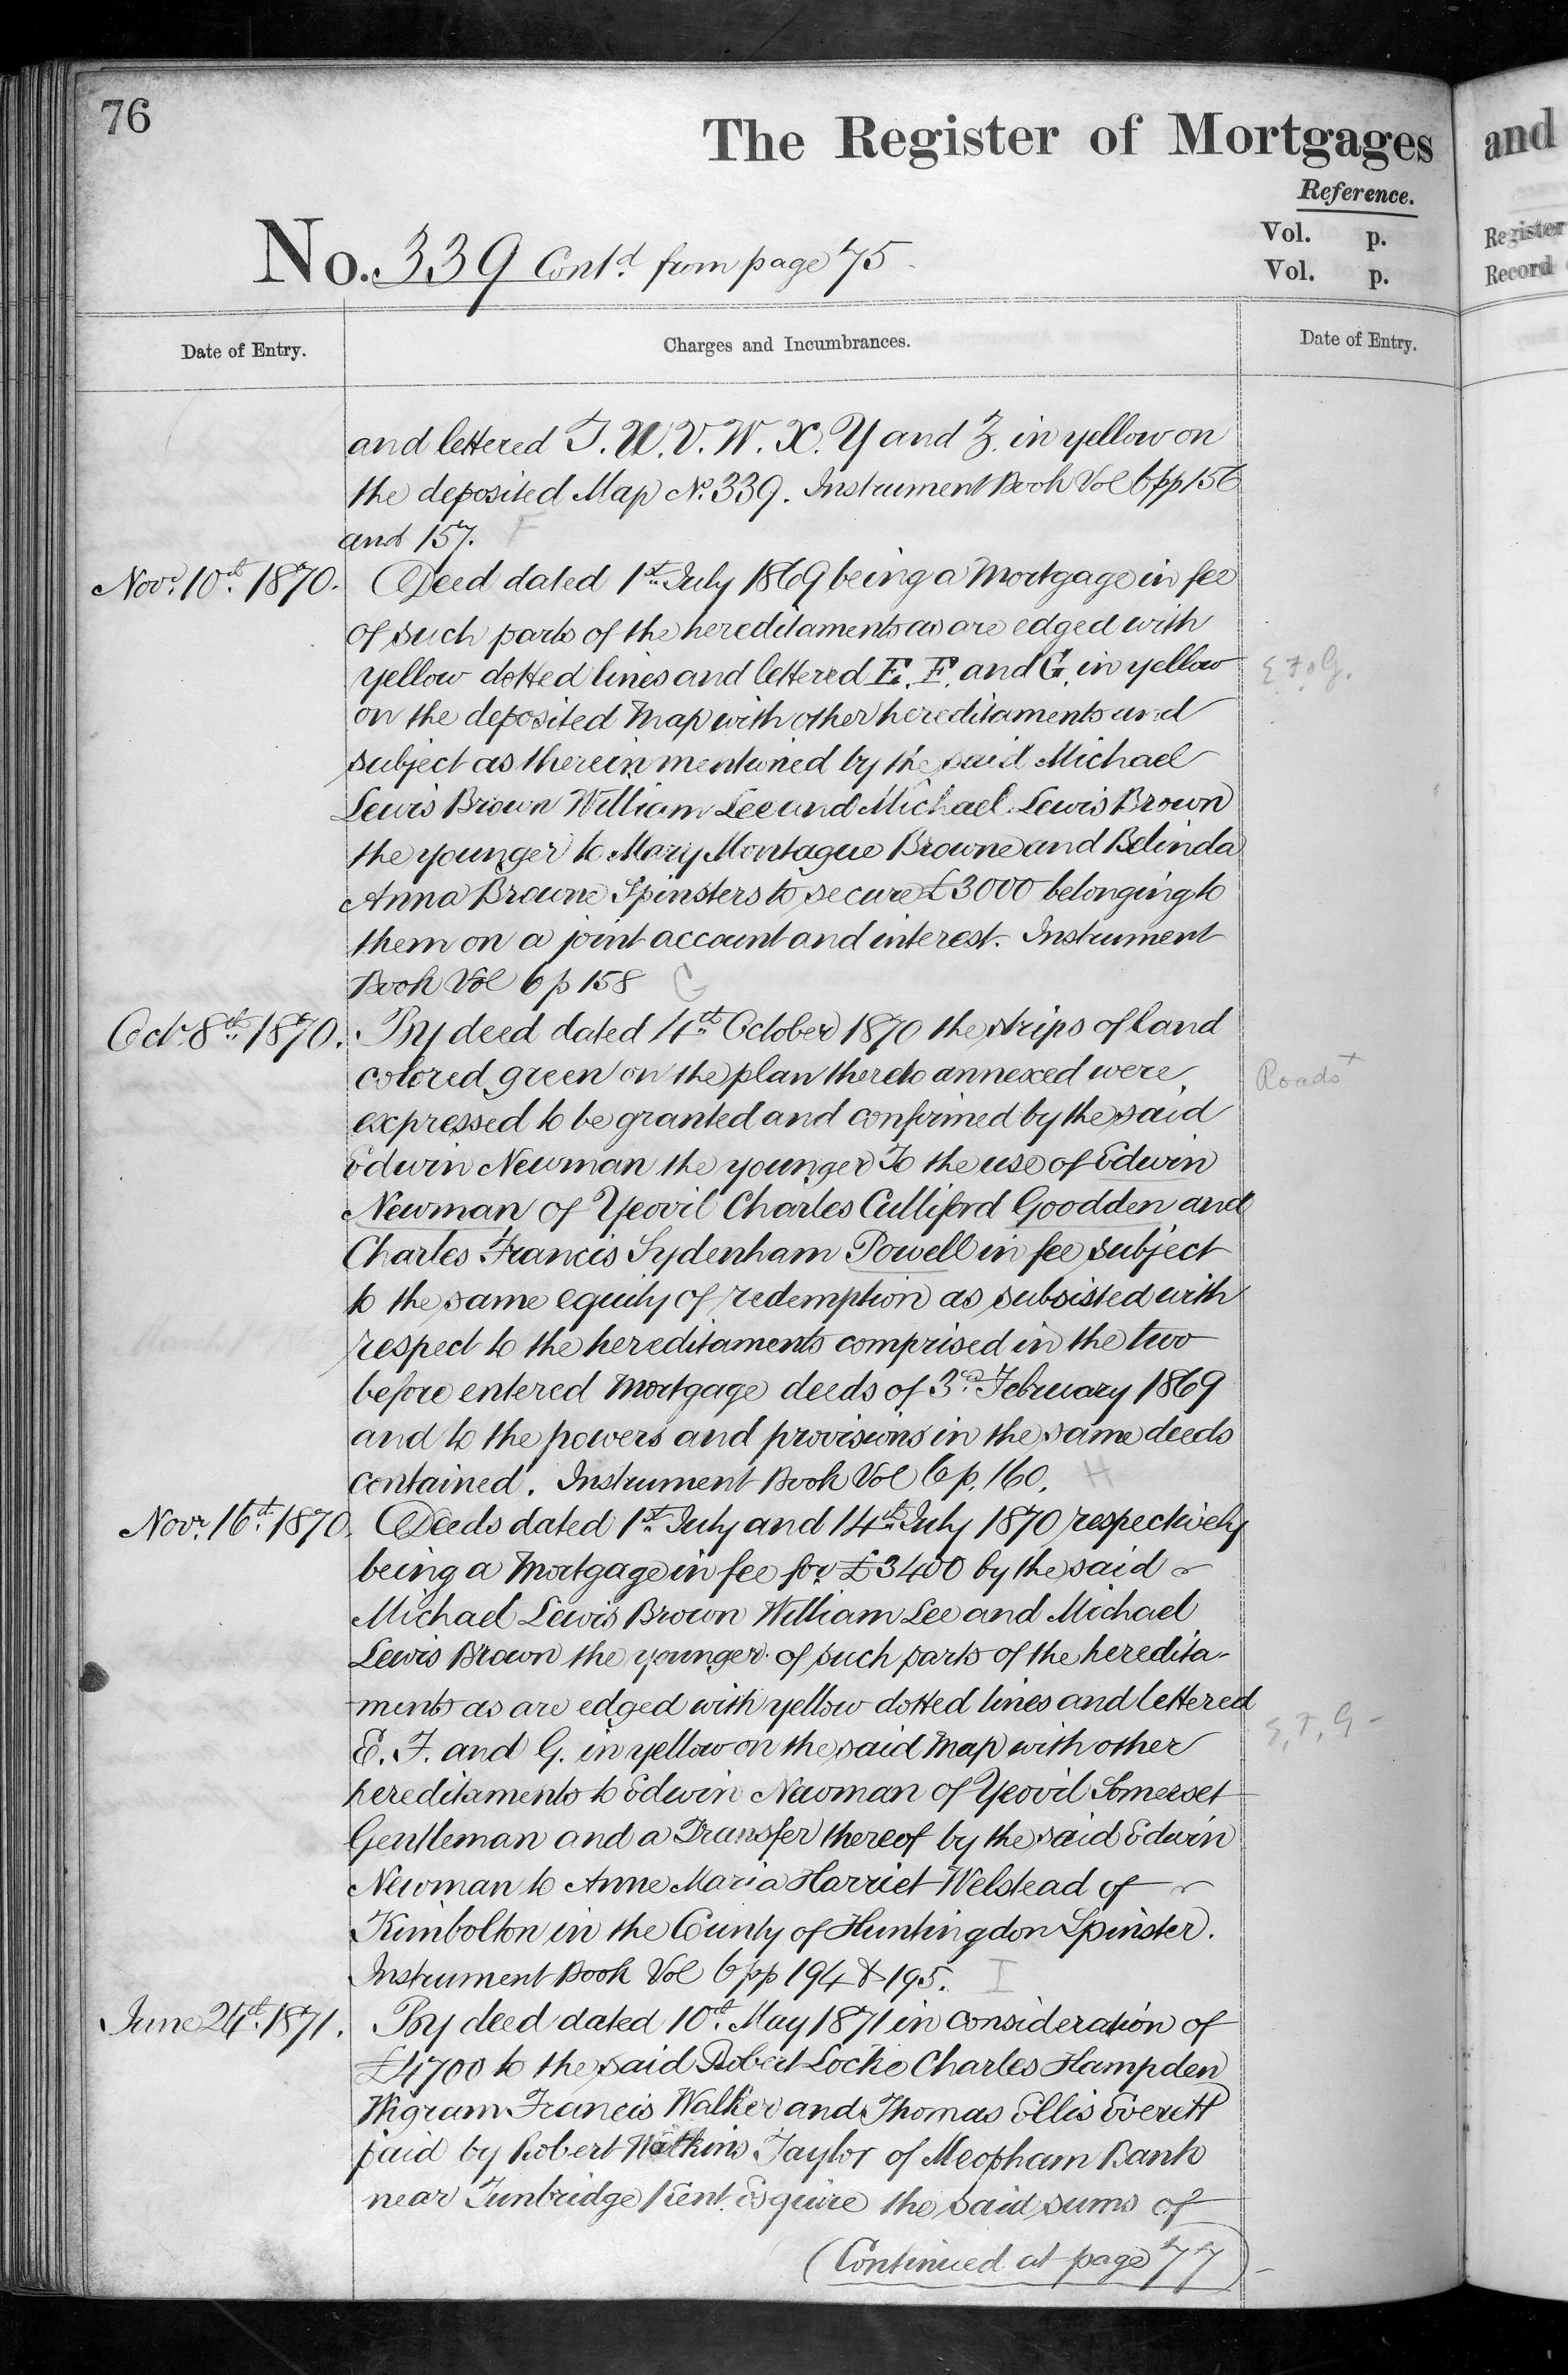 76
The Register of Mortgages
and
Reference.
Vol. p.
Register
No. 339 Contd. from page 75
Vol. p.
Record
Date of Entry.
Charges and Incumbrances.
Date of Entry.
and lettered T. U. V. W. X. Y and Z. in yellow on
the deposited Map No. 339. Instrument Book Vol 6 pp 156
and 157. F
Novr. 10th. 1870. Deed dated 1st. July 1869 being a Mortgage in fee
of such parts of the hereditaments as are edged with
yellow dotted lines and lettered E. F. and G. in yellow
E F & G.
on the deposited Map with other hereditaments and
subject as therein mentioned by the said Michael
Lewis Brown William Lee and Michael Lewis Brown
the younger to Mary Montague Browne and Belinda
Anna Browne Spinsters to secure £3000 belonging to
them on a joint account and interest. Instrument
Book Vol 6 p 158 G
Octr. 8th. 1870. By deed dated 4th. October 1870 the strips of land
colored green on the plan thereto annexed were
Roads x
expressed to be granted and confirmed by the said
Edwin Newman the younger To the use of Edwin
Newman of Yeovil Charles Culliford Goodden and
Charles Francis Sydenham Powell in fee subject
to the same equity of redemption as subsisted with
respect to the hereditaments comprised in the two
before entered Mortgage deeds of 3rd. February 1869
and to the powers and provisions in the same deeds
contained. Instrument Book Vol 6 p. 160. H
Novr. 16th. 1870. Deeds dated 1st. July and 14th. July 1870 respectively
being a Mortgage in fee for £3400 by the said
Michael Lewis Brown William Lee and Michael
Lewis Brown the younger of such parts of the heredita-
ments as are edged with yellow dotted lines and lettered
E. F. and G. in yellow on the said Map with other
E, F, G -
hereditaments to Edwin Newman of Yeovil Somerset
Gentleman and a Transfer thereof by the said Edwin
Newman to Anne Maria Harriet Welstead of
Kimbolton in the County of Huntingdon Spinster.
Instrument Book Vol 6 pp 194 & 195. I
June 24th. 1871. By deed dated 10th. May 1871 in consideration of
£4700 to the said Robert Locke Charles Hampden
Wigram Francis Walker and Thomas Ellis Everett
paid by Robert Watkins Taylor of Meopham Bank
near Tunbridge Kent Esquire the said sums of
(Continued at page 77)